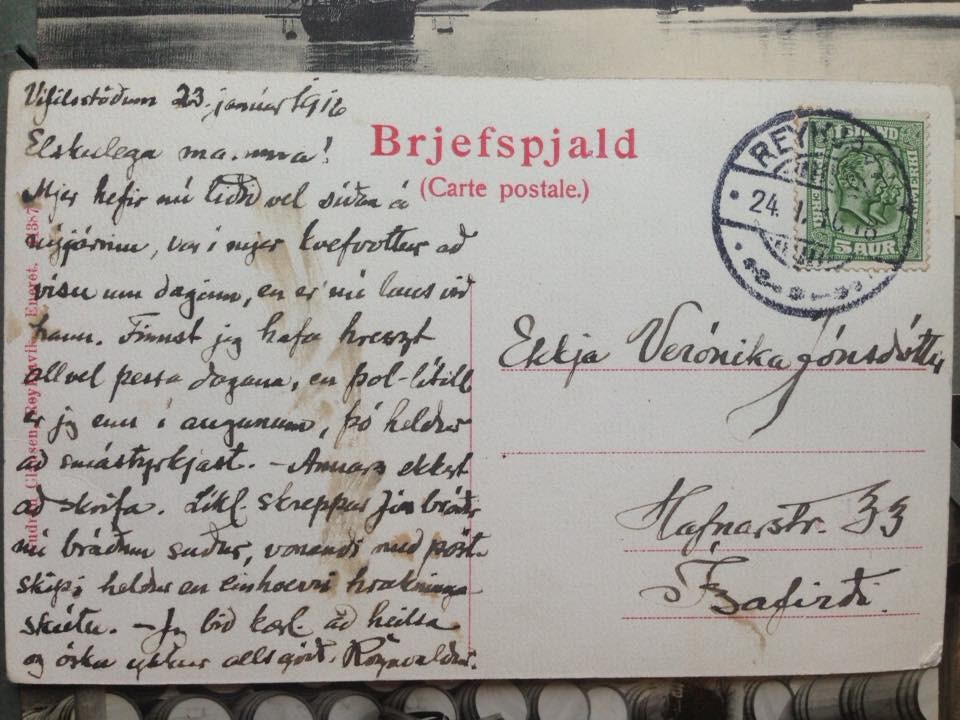 Vífilsstöðum 23. janúar 1916
Elskulega mamma!
Mjer hefir nú liðið vel síðan á
nýjárinu, var í mjer kvefvottur að
vísu um daginn, en er nú laus við
hann. Finnst jeg hafa hresszt
allvel þessa dagana, en þol-lítill
er jeg enn í augunum, þó heldur
að smástyrkjast. - Annars ekkert
að skrifa. Líkl. skreppur Jón bróðir
nú bráðum suður, vonandi með póst-
skipi heldur en einhverri hraknings
skútu. - Jeg bið kærl. að heilsa
og óska ykkur alls góðs. Rögnvaldur.
Brjefspjald
(Carte postale.)
REYKJAVÍK
24. 1. 16
ÍSLAND
5 AUR
Ekkja Verónika Jónsdóttir
Hafnarstr. 33
Ísafirði.
Reykjavik. Eneret.